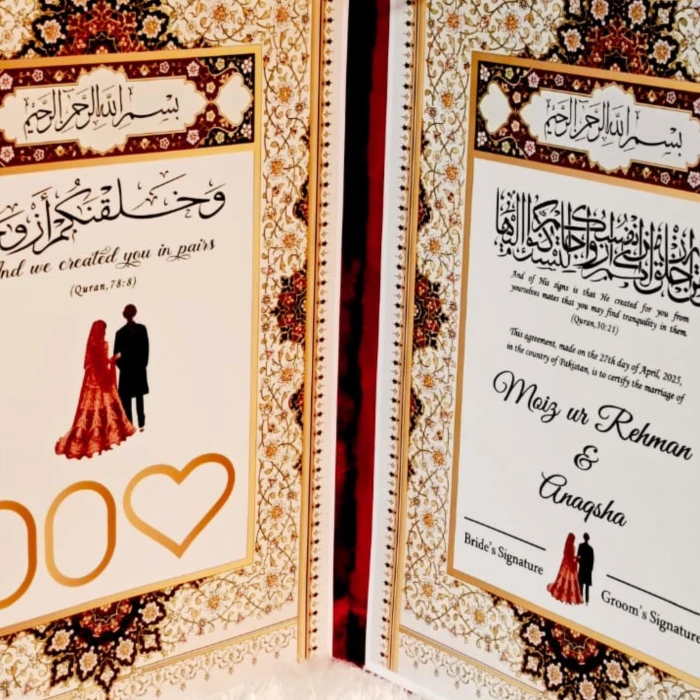 بسم الله الرحمن الرحيم
وَخَلَقْنَكُمْ
And we created you in pairs
(Quran,78:8)
بسم الله الرحمن الرحيم
And of His signs is that He created for you from
yourselves mates that you may find tranquility in them.
(Quran,30:21)
This agreement, made on the 27th day of April, 2025,
in the country of Pakistan, is to certify the marriage of
Moiz ur Rehman
&
Anaqsha
Bride's Signature
Groom's Signature